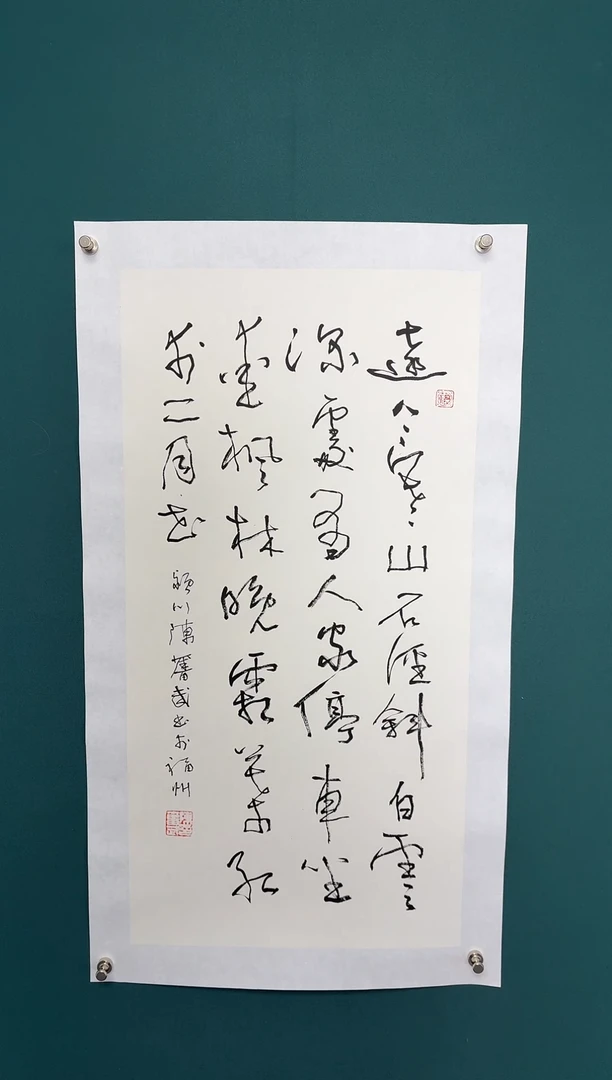 遠上寒山石徑斜白雲
深處有人家停車坐
愛楓林晚霜葉紅
於二月花 潁川陳奮武書於福州